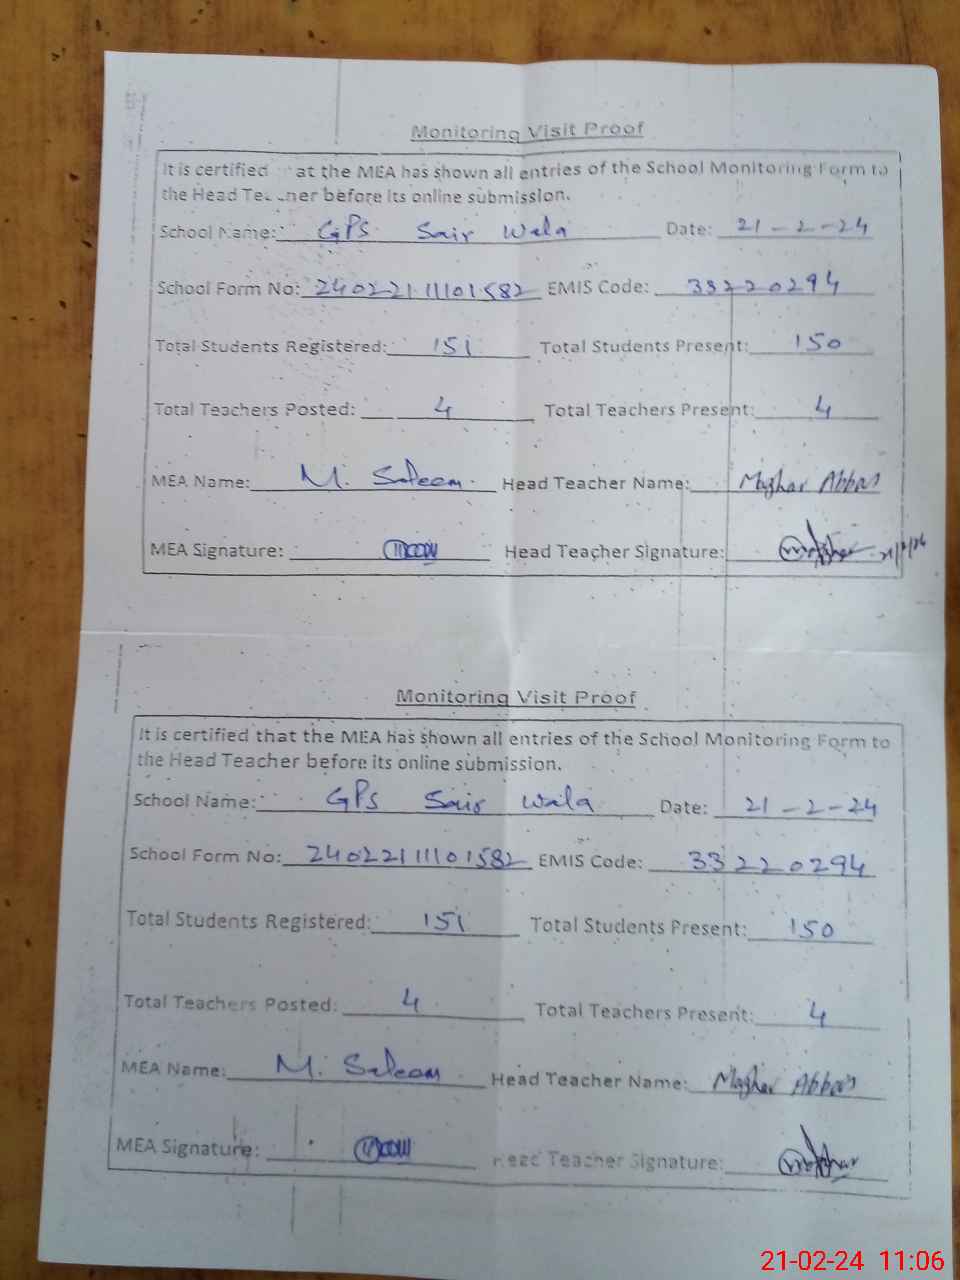 Monitoring Visit Proof
It is certified at the MEA has shown all entries of the School Monitoring Form to
the Head before its online submission.
School Name: GPS Sair Wala Date: 21-2-24
School Form No: 240221111101582 EMIS Code: 33220294
Total Students Registered: 151 Total Students Present: 150
Total Teachers Posted: 4 Total Teachers Present: 4
MEA Name: M. Saleem Head Teacher Name: Mazhar Abbas
MEA Signature: Head Teacher Signature:
Monitoring Visit Proof
It is certified that the MEA has shown all entries of the School Monitoring Form to
the Head Teacher before its online submission.
School Name: GPS Sair Wala Date: 21-2-24
School Form No: 240221111101582 EMIS Code: 33220294
Total Students Registered: 151 Total Students Present: 150
Total Teachers Posted: 4 Total Teachers Present: 4
MEA Name: M. Saleem Head Teacher Name: Mazhar Abbas
MEA Signature: Head Teacher Signature:
21-02-24 11:06